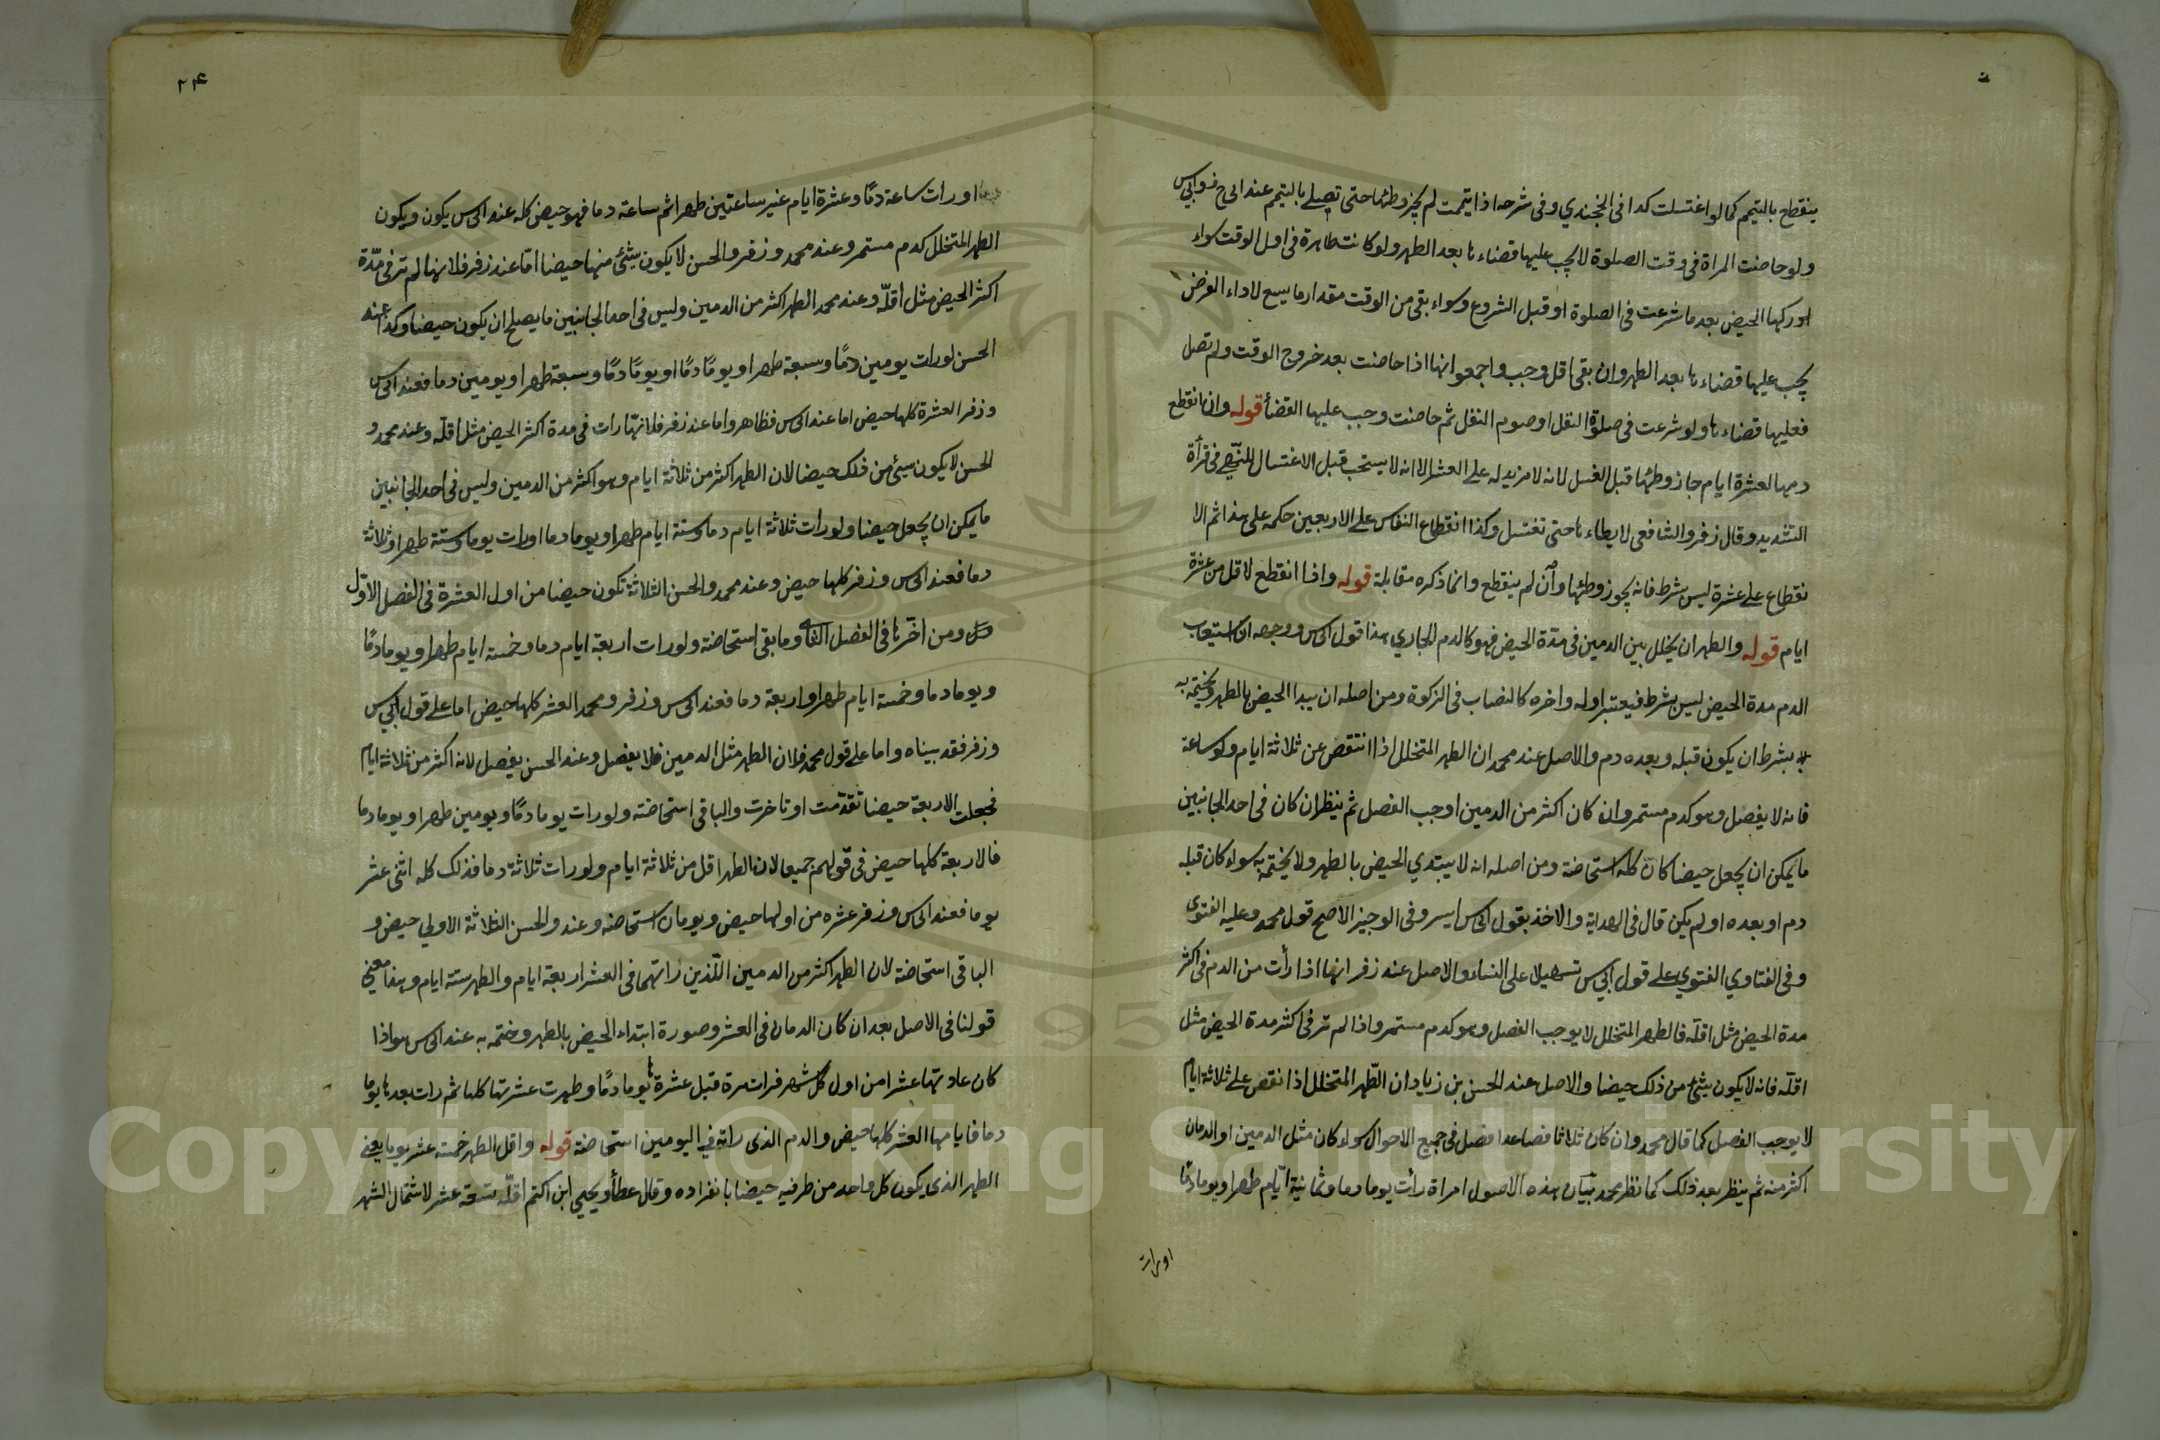 ينقطع بالتيمم كما لو اغتسلت كذا فى الخجندي وفى شرحه اذا تيممت لم يجز وطئها حتى تصلى بالتيمم عند ابى ح ف وابى س
ولو حاضت المراة فى وقت الصلوة لا يجب عليها قضاءها بعد الطهر ولو كانت طاهرة فى اول الوقت سواء
ادركها الحيض بعد ما شرعت فى الصلوة او قبل الشروع وسواء بقى من الوقت مقدار ما يسع لاداء الفرض
يجب عليها قضاءها بعد الطهر وان بقى اقل وجب واجمعوا انها اذا حاضت بعد خروج الوقت ولم تصل
فعليها قضاءها ولو شرعت فى صلوة النفل او صوم النفل ثم حاضت وجب عليها القضأ قوله وان انقطع
دمها لعشرة ايام جاز وطئها قبل الغسل لانه لا مزيد له على العشر الا انه لا يستحب قبل الاغتسال للنهى فى قرأة
التشديد وقال زفر والشافعى لا يطاءها حتى تغتسل وكذا انقطاع النفاس على الاربعين حكمه على هذا ثم الا
نقطاع على عشرة ليس بشرط فانه يجوز وطئها وآن لم ينقطع وانما ذكره مقابلة قوله واذا انقطع لاقل من عشرة
ايام قوله والطهر ان يخلل بين الدمين فى مدة الحيض فهو كالدم الجاري هذا قول ابى س ووجهه ان استيعاب
الدم مدة الحيض ليس بشرط فيعتبر اوله واخره كالنصاب فى الزكوة ومن اصله ان يبدا الحيض بالطهر ويختم به
بشرط ان يكون قبله وبعده دم والاصل عند محمد ان الطهر المتخلل اذا انتقص عن ثلاثة ايام ولو ساعة
فانه لا يفصل وهو كدم مستمر وان كان اكثر من الدمين اوجب الفصل ثم ينظر ان كان فى احد الجانبين
ما يمكن ان يجعل حيضا كان كله استحاضة ومن اصله انه لا يبتدي الحيض بالطهر ولا يختمه به سواء كان قبله
دم او بعده او لم يكن قال فى الهداية والاخذ بقول ابى س ايسر وفى الوجيز الاصح قول محمد وعليه الفتوى
وفى الفتاوي الفتوي على قول ابى س تسهيلا على النساء والاصل عند زفر انها اذا رأت من الدم فى اكثر
مدة الحيض مثل اقله فالطهر المتخلل لا يوجب الفصل وهو كدم مستمر واذا لم تر فى اكثر مدة الحيض مثل
اقله فانه لا يكون شئ من ذلك حيضا والاصل عند الحسن بن زياد ان الطّهر المتخلل اذا نقص على ثلاثة ايام
لا يوجب الفصل كما قال محمد وان كان ثلاثا فصاعدا فصل فى جميع الاحوال سواء كان مثل الدمين او الدمان
اكثر منه ثم ينظر بعد ذلك كما نظر محمد بيان هذه الاصول امراة رأت يوما دما وثمانية ايّام طهرا ويوما دمًا
اورات
٢٤
اورات ساعة دمًا وعشرة ايام غير ساعتين طهرا ثم ساعة دما فهو حيض كله عند ابى س يكون ويكون
الطهر المتخلل كدم مستمر وعند محمد وزفر والحسن لا يكون شئ منها حيضا امّا عند زفر فلانها لم تر فى مدّة
اكثر الحيض مثل اقلّه وعند محمد الطهر اكثر من الدمين وليس فى احد الجانبين ما يصلح ان يكون حيضا وكذا عند
الحسن لورات يومين دمًا وسبعة طهرا ويومًا دمًا او يومًا دمًا وسبعة طهرا ويومين دما فعند ابى س
وزفر العشرة كلها حيض اما عند ابى س فظاهر واما عند زفر فلانهّا رات فى مدة اكثر الحيض مثل اقلّه وعند محمد و
الحسن لا يكون شئ من ذلك حيضا لان الطهر اكثر من ثلاثة ايام وهو اكثر من الدمين وليس فى احد الجانبين
ما يمكن ان يجعل حيضا ولورات ثلاثة ايام دما وستة ايام طهرا ويوما دما اورات يوما وستة طهرا وثلاثة
دما فعند ابى س وزفر كلها حيض وعند محمد والحسن الثلاثة تكون حيضا من اول العشرة فى الفصل الاوّل
ومن اخرها فى الفصل الثانى وما بقى استحاضة ولورات اربعة ايام دما وخمسة ايام طهرا ويوما دمًا
ويوما دما وخمسة ايام طهرا واربعة دما فعند ابى س وزفر ومحمد العشر كلها حيض اما على قول ابى س
وزفر فقد بيناه واما على قول محمد فلان الطهر مثل الدمين فلا يفصل وعند الحسن يفصل لانه اكثر من ثلاثة ايام
فجعلت الاربعة حيضا تقدّمت او تاخرت والباقى استحاضة ولورات يوما دمًا ويومين طهرا ويوما دما
فالاربعة كلها حيض فى قولهم جميعا لان الطهر اقل من ثلاثة ايام ولورات ثلاثة دما فذلك كله اثنى عشر
يوما فعند ابى س وزفر عشره من اولها حيض ويومان استحاضة وعند والحسن الثلاثة الاولي حيض و
الباقى استحاضة لان الطهر اكثر من الدمين اللّذين راتهما فى العشر اربعة ايام والطهر ستة ايام وهذا معنى
قولنا فى الاصل بعد ان كان الدمان فى العشر وصورة ابتداء الحيض بالطهر وختمه به عند ابى س هو اذا
كان عادتها عشرا من اول كل شهر فرات مرة قبل عشرتها يوما دمًا وطهرت عشرتها كلها ثم رات بعدها يوما
دما فايامها العشر كلها حيض والدم الذى راته فى اليومين استحاضة قوله واقل الطهر خمسة عشر يوما يعنى
الطهر الذى يكون كل واحد من طرفيه حيضا بانفراده وقال عطأ ويحيى ابن اكثم اقلّه تسعة عشر لاشتمال الشهر
Copyright © King Saud University